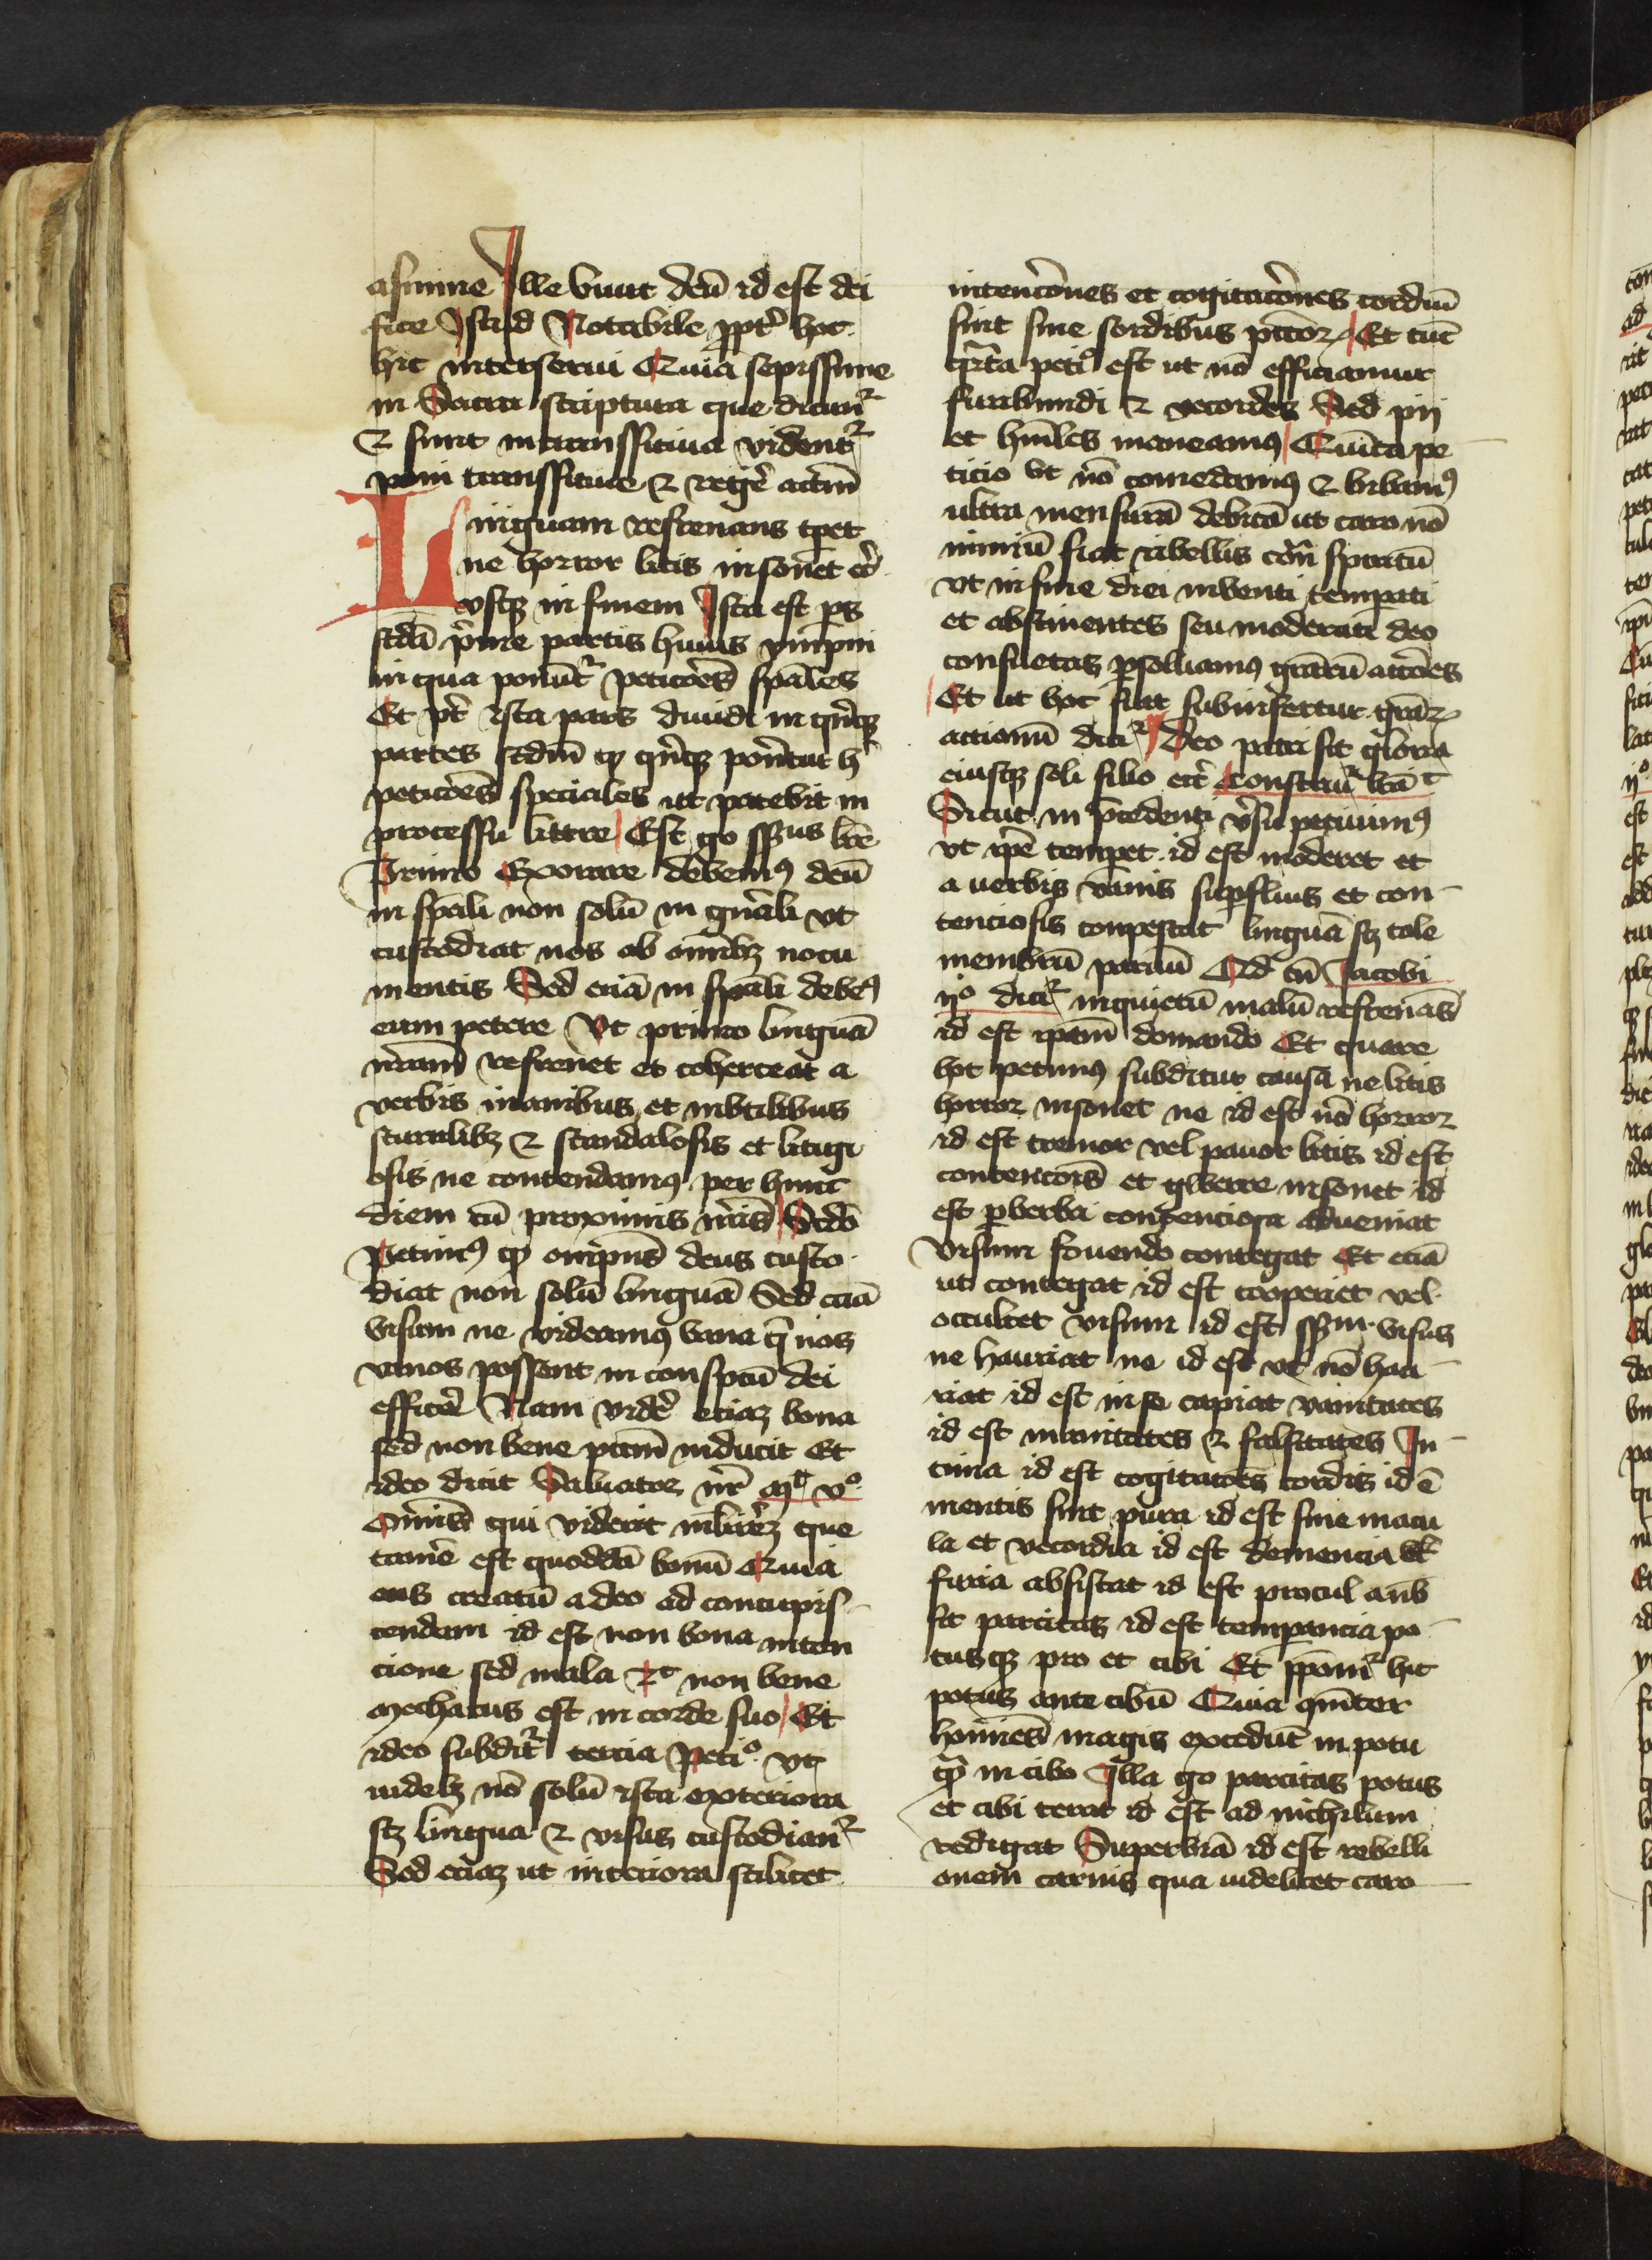 asinine Ille viuit deū id est dei
fice Istud Notabile ꝓptˀ hoc
hic interserui Quia sepissime
in Sacra scriptura que dicunť
& sunt intranssitiua videntˀ
poni transsitiue & regeˀ actm̄
Linguam refrenans tꝑet
ne horror litis insonet etcˀ
vsqꝫ in finem Ista est ps
scd̄a pˀme partis huius ympni
in qua ponūtˀ peticōes sp̄ales
Et pt̄ ista pars diuidi in qn̄qꝫ
partes scdm̄ qꝫ qn̄qꝫ ponūtur h
peticōes speciales ut patebit in
processu littere Est go ss̄us lrē
Primo Exorare debemꝰ deū
in sp̄ali non solū in gn̄ali vt
custodiat nos ab om̄ibꝫ nocu
mentis Sed eciā in sp̄ali debeꝰ
eum petere Vt primo linguā
nr̄am refrenet et coherceat a
verbis inanibus et inutilibus
scurulibꝫ & scandalosis et litigi
osis ne contendamꝰ per hunc
diem cū proximis nr̄is Scdō
Petimꝰ qꝫ omp̄ns deus custo
diat non solū linguā Sed eciā
visum ne videamꝰ vana q̄ nos
vanos possent in conspc̄tū dei
efficeˀ Nam vidēˀ eciaꝫ bona
sed non bene pctm̄ inducit Et
ideo dicit Saluator nr̄ Mᵗ vᵒ
Om̄is qui viderit mulierꝫ que
tamē est quoddā bonū Quia
ens creatū a deo ad concupis
cendam id est non bona inten
cione sed mala &c non bene
mechatus est in corde suo Et
ideo subditˀ tercia Petiᵒ vt
videlꝫ nō solū ista exteriora
scꝫ lingua & visus custodianť
Sed eciaꝫ ut interiora scilicet
intencōnes et cogitacōnes cordiū
sint sine sordibus pctōꝝ Et tūc
qr̄ta petiᵒ est ut nō efficiamur
furibundi & vecordes Sed pij
et hūiles maneamꝰ Quīta pe
ticio vt nō comedamꝰ & bibamꝰ
ultra mensurā debitā ut caro nō
nimiū fiat ribellis cōtr̄ spiritū
vt in fine diei inuenti temperati
et abstinentes seu moderati deo
consuetas ꝑsoluamꝰ gr̄arū accōes
Et ut hoc fiat subinfertur gr̄aꝝ
actionū dicˀ Deo patri sit gloria
eiusqꝫ soli filio etcˀ Construˀ lr̄ā c
Sicut in p̄cedenti vˀsu petiuimꝰ
vt ip̄e temꝑet id est moderet et
a uerbis vanis suꝑfluis et con
tenciosis compescat linguā scꝫ tale
membrū paruū Qd̄ tn̄ Jacobi
ijᵒ dicˀ inquietū malū refrenās
id est ip̄am domando Et quare
hoc petimꝰ subditur causa ne litis
horror insonet ne id est nō horror
id est tremor vel pauor litis id est
contencōis et gwerre insonet id
est ꝑ verba contenciosa adueniat
Visum fouendo contegat Et eciā
ut contegat id est cooperiet vel
occultet visum id est ss̄um visus
ne hauriat ne id est vt nō hau
riat id est in se capiat vanitates
id est inanitates & falsitates In
tima id est cogitacōes cordis id ē
mentis sint pura id est sine macu
la et vecordia id est demencia vel
furia absistat id est procul
sit parcitas id est temperancia po
tusqꝫ pro et cibi Et p̄ponitˀ hic
potus ante cibū Quia qm̄ter
homines magis excedūt in potu
qꝫ in cibo Illa go parcitas potus
et cibi terat id est ad nichilum
redigat Superbiā id est rebelli
onem carnis qua videlicet caro